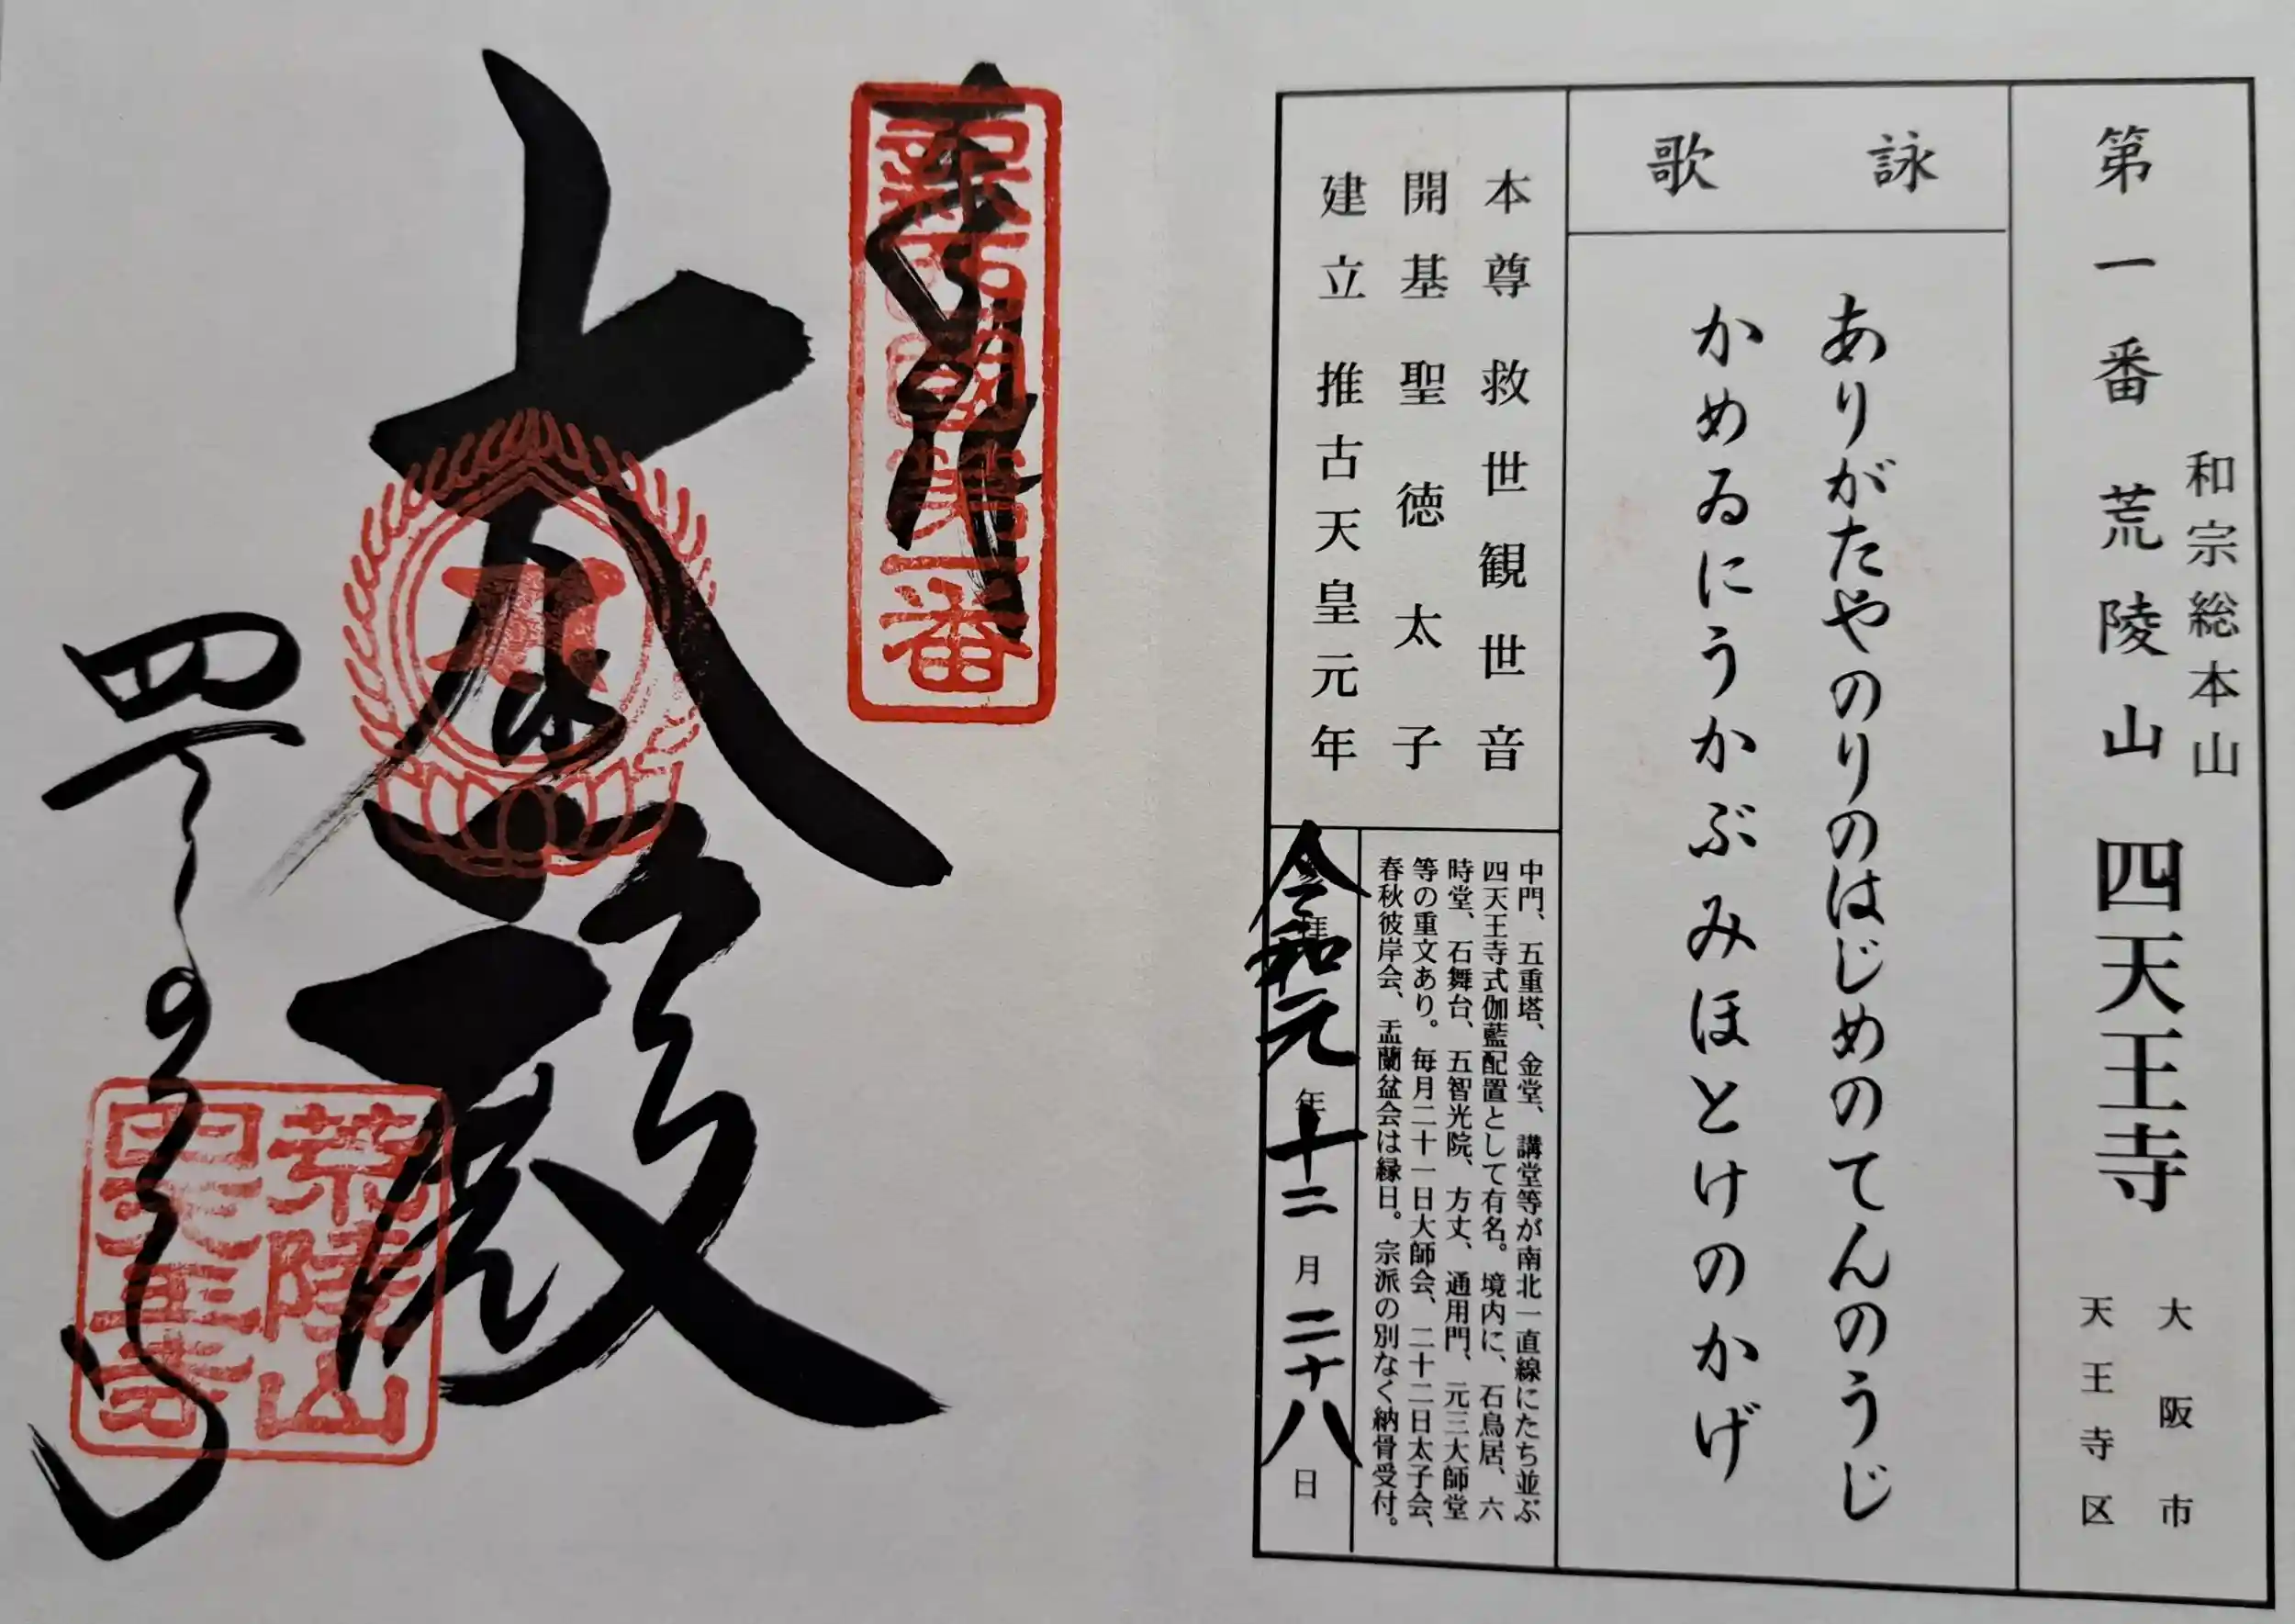 第一番 荒陵山 四天王寺
和宗総本山
大阪市
天王寺区
詠歌
ありがたやのりのはじめのてんのうじ
かめゐにうかぶみほとけのかげ
本尊 救世観世音
開基 聖徳太子
建立 推古天皇元年
中門、五重塔、金堂、講堂等が南北一直線にたち並ぶ
四天王寺式伽藍配置として有名。境内に、石鳥居、六
時堂、石舞台、五智光院、方丈、通用門、元三大師堂
等の重文あり。毎月二十一日大師会、二十二日太子会、
春秋彼岸会、盂蘭盆会は縁日。宗派の別なく納骨受付。
令和元年十二月二十八日
奉拝
新西国第一番
大悲殿
四天王寺
荒陵山
四天王寺